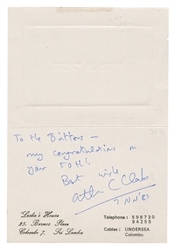 To the Buttons —
my congratulations on
your 50th
Best wishes
Leslie's House
25, Barnes Place
Colombo 7, Sri Lanka
Telephone : 598730
94255
Cables : UNDERSEA
Colombo